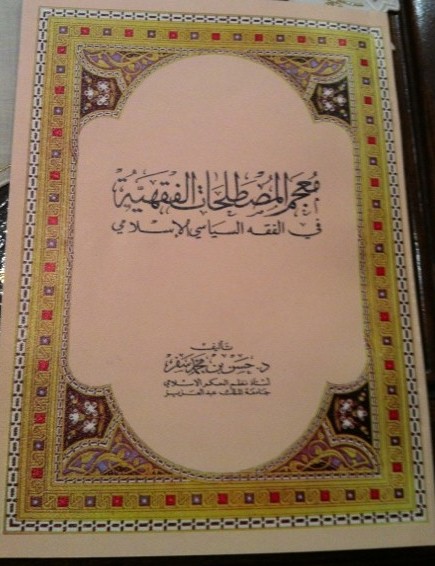 معجم المصطلحات الفقهية
في الفقه السياسي الإسلامي
تأليف
د. حسن بن محمد سفر
أستاذ نظم الحكم الإسلامي
جامعة الملك عبد العزيز